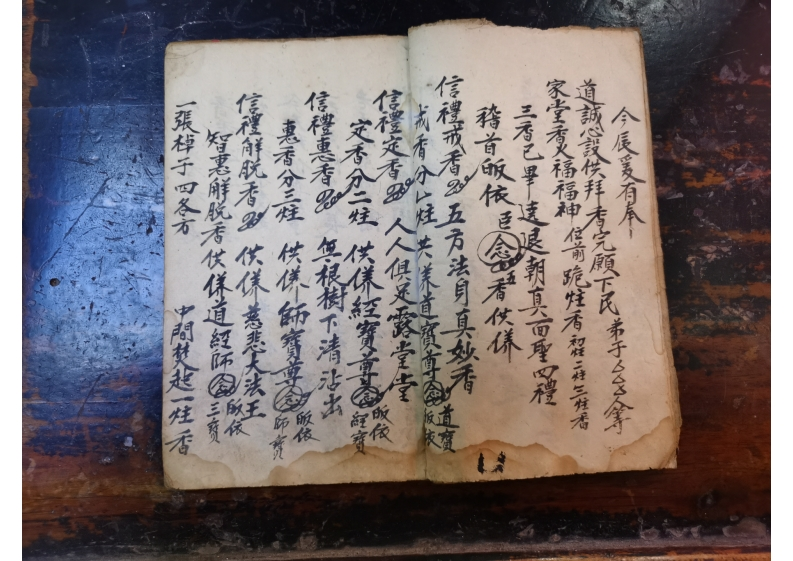 今辰爰有奉
道誠心設供拜香完願下民弟子厶厶厶等
家堂香火福福神位前跪炷香初炷二炷三炷香
三香已畢達退朝真面聖四禮
稽首皈依臣念五香供養
信禮戒香 五方法身真妙香
戒香分一炷供养道寶尊念皈依道寶
信禮定香 人人俱足露堂堂
定香分二炷供养經寶尊念皈依經寶
信禮惠香 無根樹下清
惠香分三炷供养師寶尊念皈依師寶
信禮解脫香 供养慈悲大法王
智惠解脫香供养道經師念皈依三寶
一張棹子四各方 中間焚起一炷香